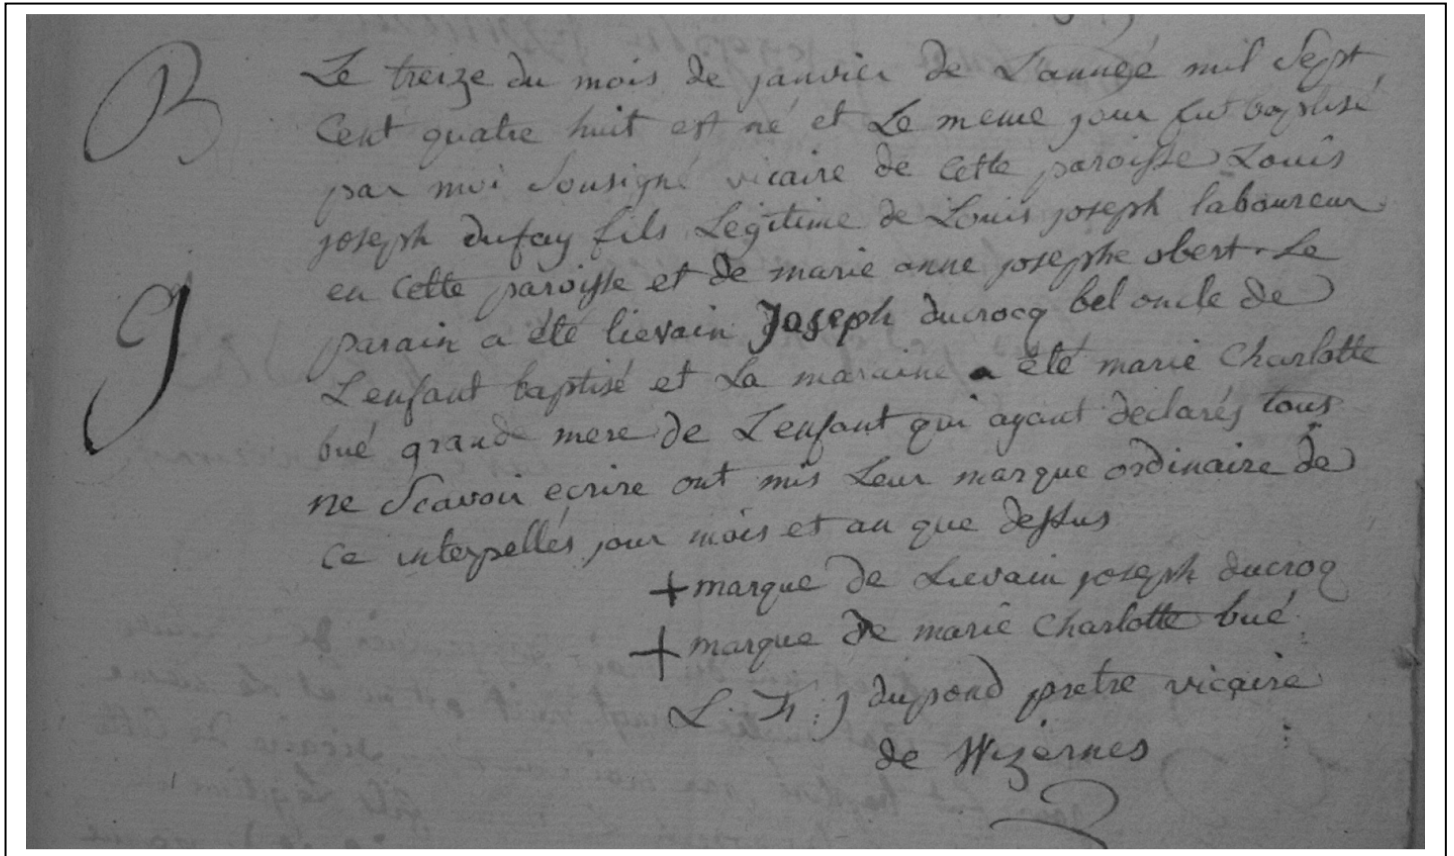 B
Le treize du mois de janvier de L'année mil Sept
Cent quatre huit est né et Le meme jour fut baptisé
par moi Sousigné vicaire de Cette paroisse Louis
joseph dufay fils Legitime de Louis joseph laboureur
en Cette paroisse et de marie anne josephe obert. Le
G
parain a été lievain Joseph ducrocq bel oncle de
L'enfant baptisé et La maraine a été marie Charlotte
bué grande mere de L'enfant qui ayant declarés tous
ne Scavoir ecrire ont mis Leur marque ordinaire de
Ce interpellés jour mois et an que dessus
+ marque de Lievain joseph ducroq
+ marque de marie Charlotte bué
L. F. : J dupond pretre vicaire
de Wizernes